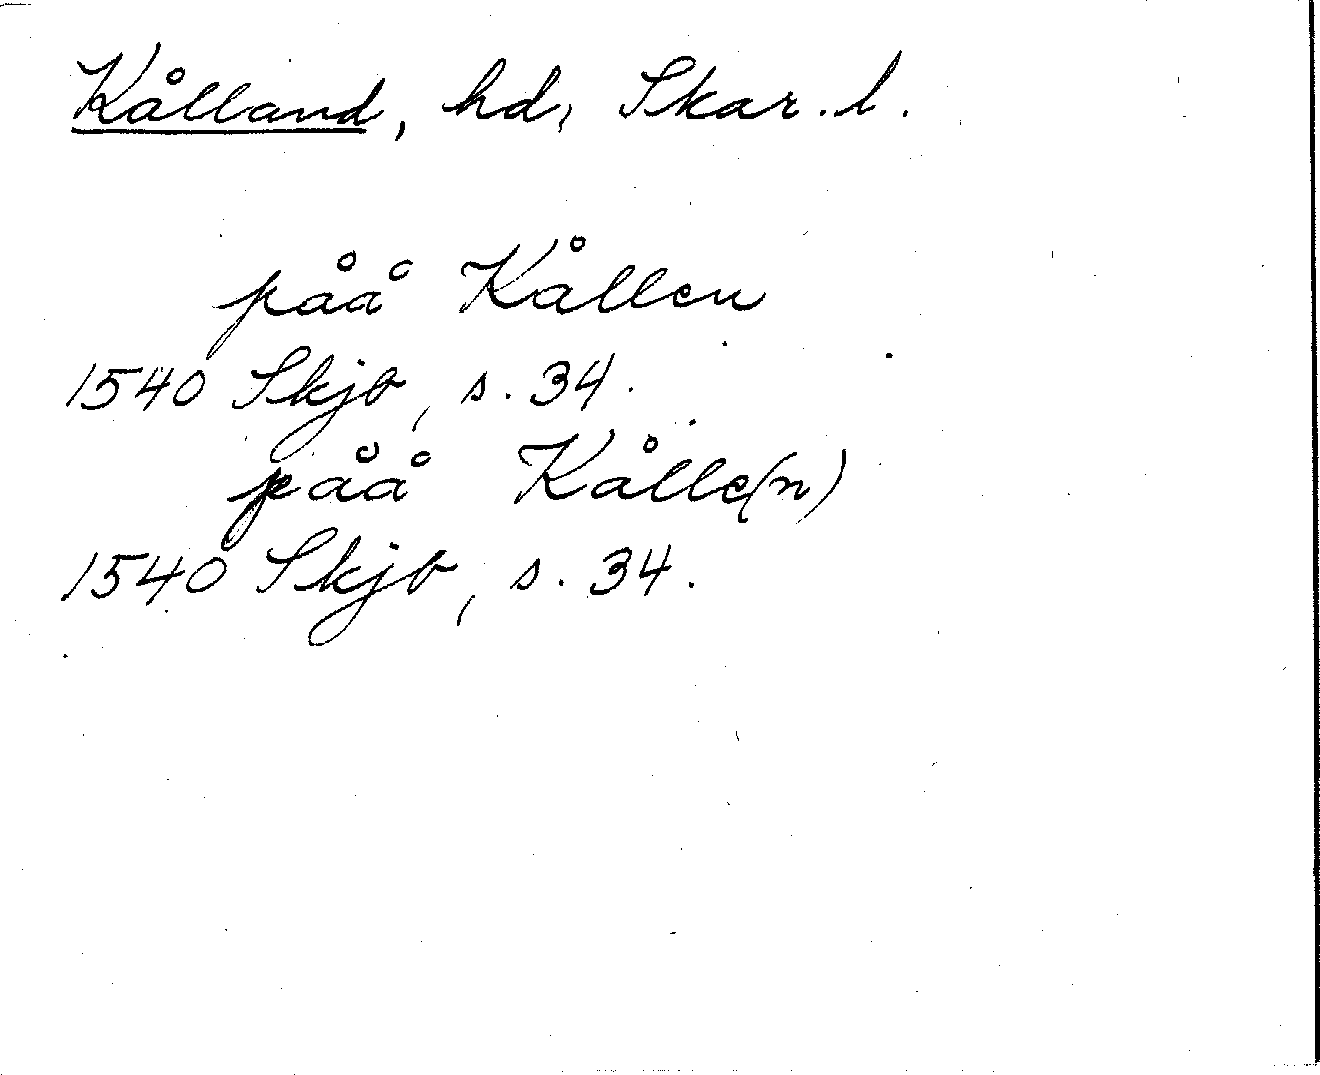 Kålland, hd, Skar. l.
påå Kållen
1540 Skjb, s. 34.
påå Kålle(n)
1540 Skjb, s. 34.